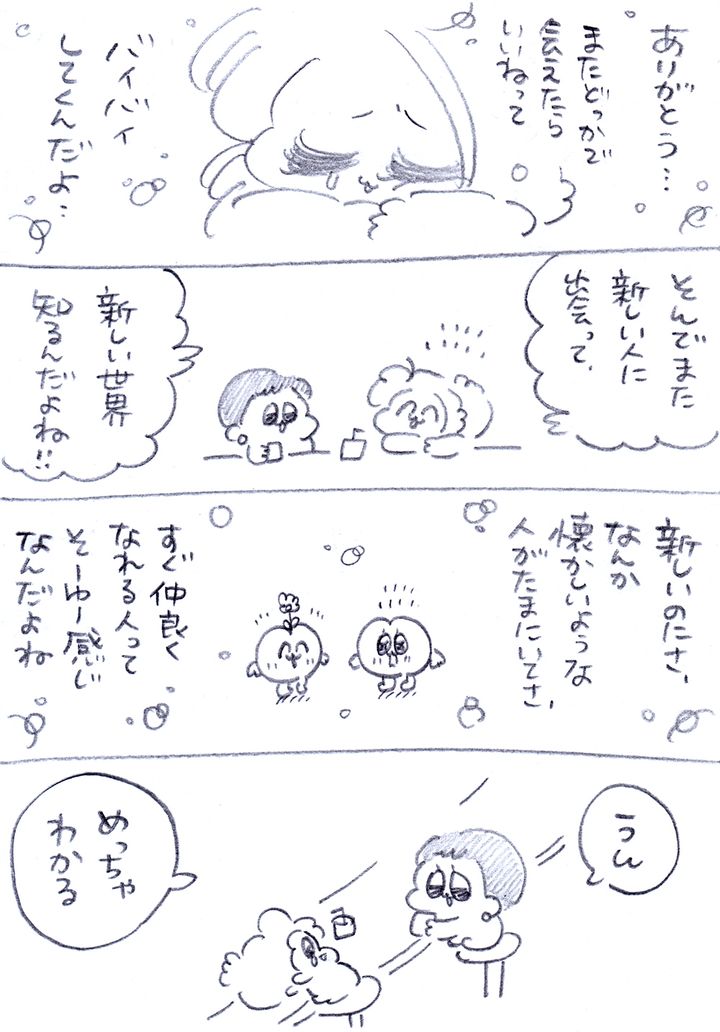 ありがとう…
またどっかで
会えたら
いいねって
バイバイ
してくんだよ…
そんでまた
新しい人に
出会って、
新しい世界
知るんだよね!!
新しいのにさ、
なんか
懐かしいような
人がたまにいてさ、
すぐ仲良く
なれる人って
そーゆー感じ
なんだよね
うん
めっちゃ
わかる